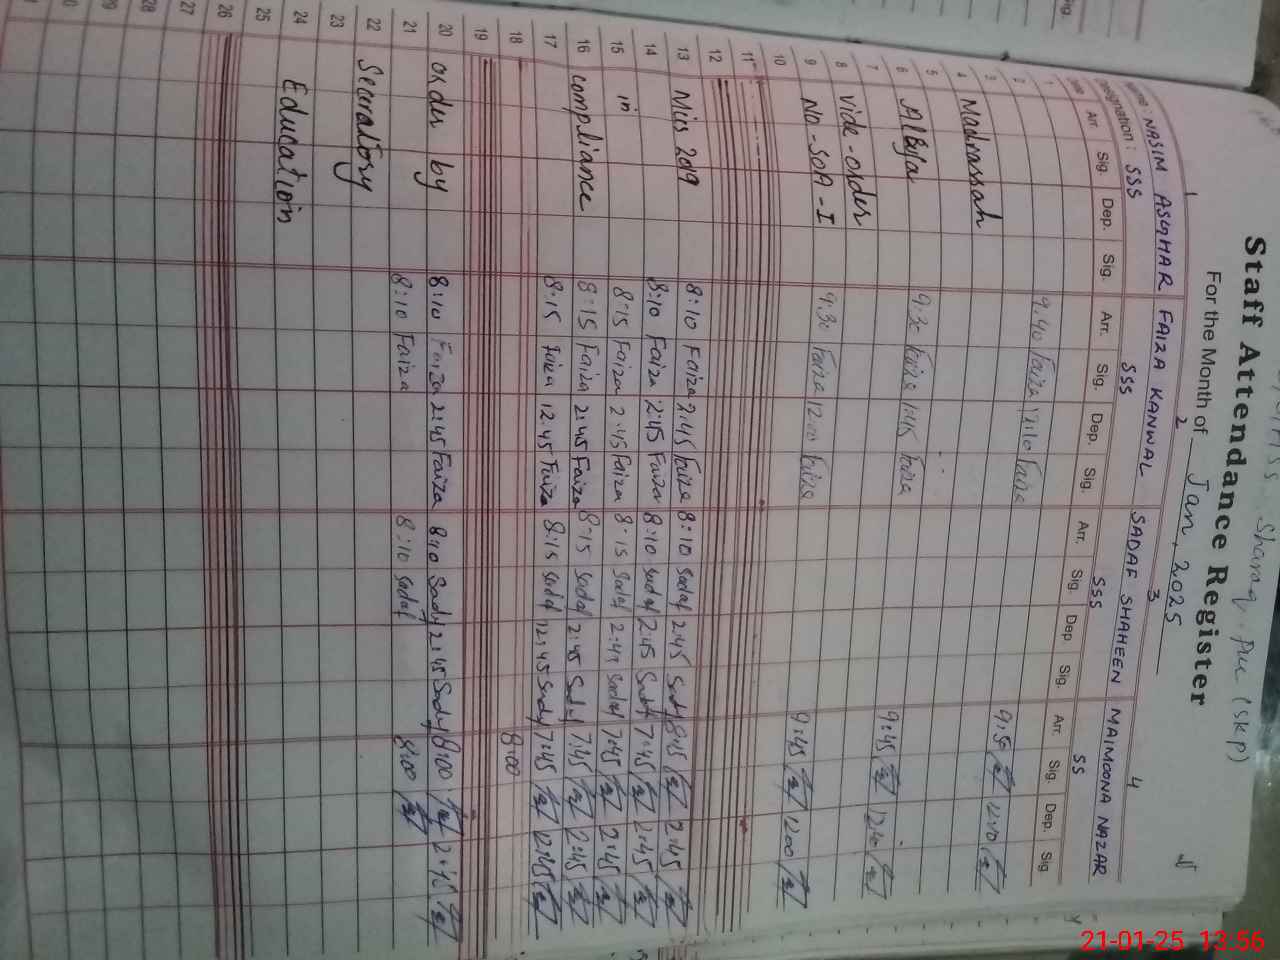 Staff Attendance Register
For the Month of Jan, 2025
1 2 3 4
Name: NASIM ASGHAR FAIZA KANWAL SADAF SHAHEEN MAIMOONA NAZAR
Designation: SSS SSS SSS SS
Arr. Sig. Dep. Sig. Arr. Sig. Dep. Sig. Arr. Sig. Dep Sig. Arr. Sig. Dep. Sig
1
2 9:40 Faiza 12:10 Faiza 9:50 12:40
3
4 Madrassah
5
6 Albya 9:30 Faiza 1:45 Faiza 9:45 12:40
7
8 vide-order
9 No-SOA-I 9:30 Faiza 12:00 Faiza 9:45 12:00
10
11
12
13 Mis 2019 8:10 Faiza 2:45 Faiza 8:10 Sadaf 2:45 Sadaf 8:45 2:45
14 8:10 Faiza 2:45 Faiza 8:10 Sadaf 2:45 Sadaf 7:45 2:45
15 in 8:15 Faiza 2:45 Faiza 8:15 Sadaf 2:45 Sadaf 7:45 2:45
16 compliance 8:15 Faiza 2:45 Faiza 8:15 Sadaf 2:45 Sadaf 7:45 2:45
17 8:15 Faiza 12:45 Faiza 8:15 Sadaf 12:45 Sadaf 7:45 12:45
18 8:00
19
20 order by 8:10 Faiza 2:45 Faiza 8:10 Sadaf 2:45 Sadaf 8:00 2:45
21 8:10 Faiza 8:10 Sadaf 8:00
22 Secratory
23
24 Education
25
26
27
28
29
30
21-01-25 13:56